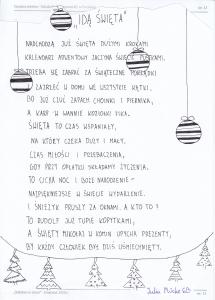 "IDĄ ŚWIĘTA"
NADCHODZĄ JUŻ ŚWIĘTA DUŻYMI KROKAMI
KALENDARZ ADWENTOWY ZACZYNA ŚWIECIĆ PUSTKAMI,
TRZEBA SIĘ ZABRAĆ ZA ŚWIĄTECZNE PORZĄDKI
ZAJRZEĆ W DOMU WE WSZYSTKIE KĄTKI,
BO JUŻ CZUĆ ZAPACH CHOINKI I PIERNIKA,
A KARP W WANNIE KOZIOŁKI FIKA.
ŚWIĘTA TO CZAS WSPANIAŁY,
NA KTÓRY CZEKA DUŻY I MAŁY.
CZAS MIŁOŚCI I PRZEBACZENIA,
GDY PRZY OPŁATKU SKŁADAMY ŻYCZENIA.
TO CICHA NOC I BOŻE NARODZENIE –
NAJPIĘKNIEJSZE W ŚWIECIE WYDARZENIE.
I ŚNIEŻYK PRUSZY ZA OKNAMI, A KTO TO?
TO RUDOLF JUŻ TUPIE KOPYTKAMI,
A ŚWIĘTY MIKOŁAJ W KOMIN UPYCHA PREZENTY,
BY KAŻDY CZŁOWIEK BYŁ DZIŚ UŚMIECHNIĘTY.
Julia